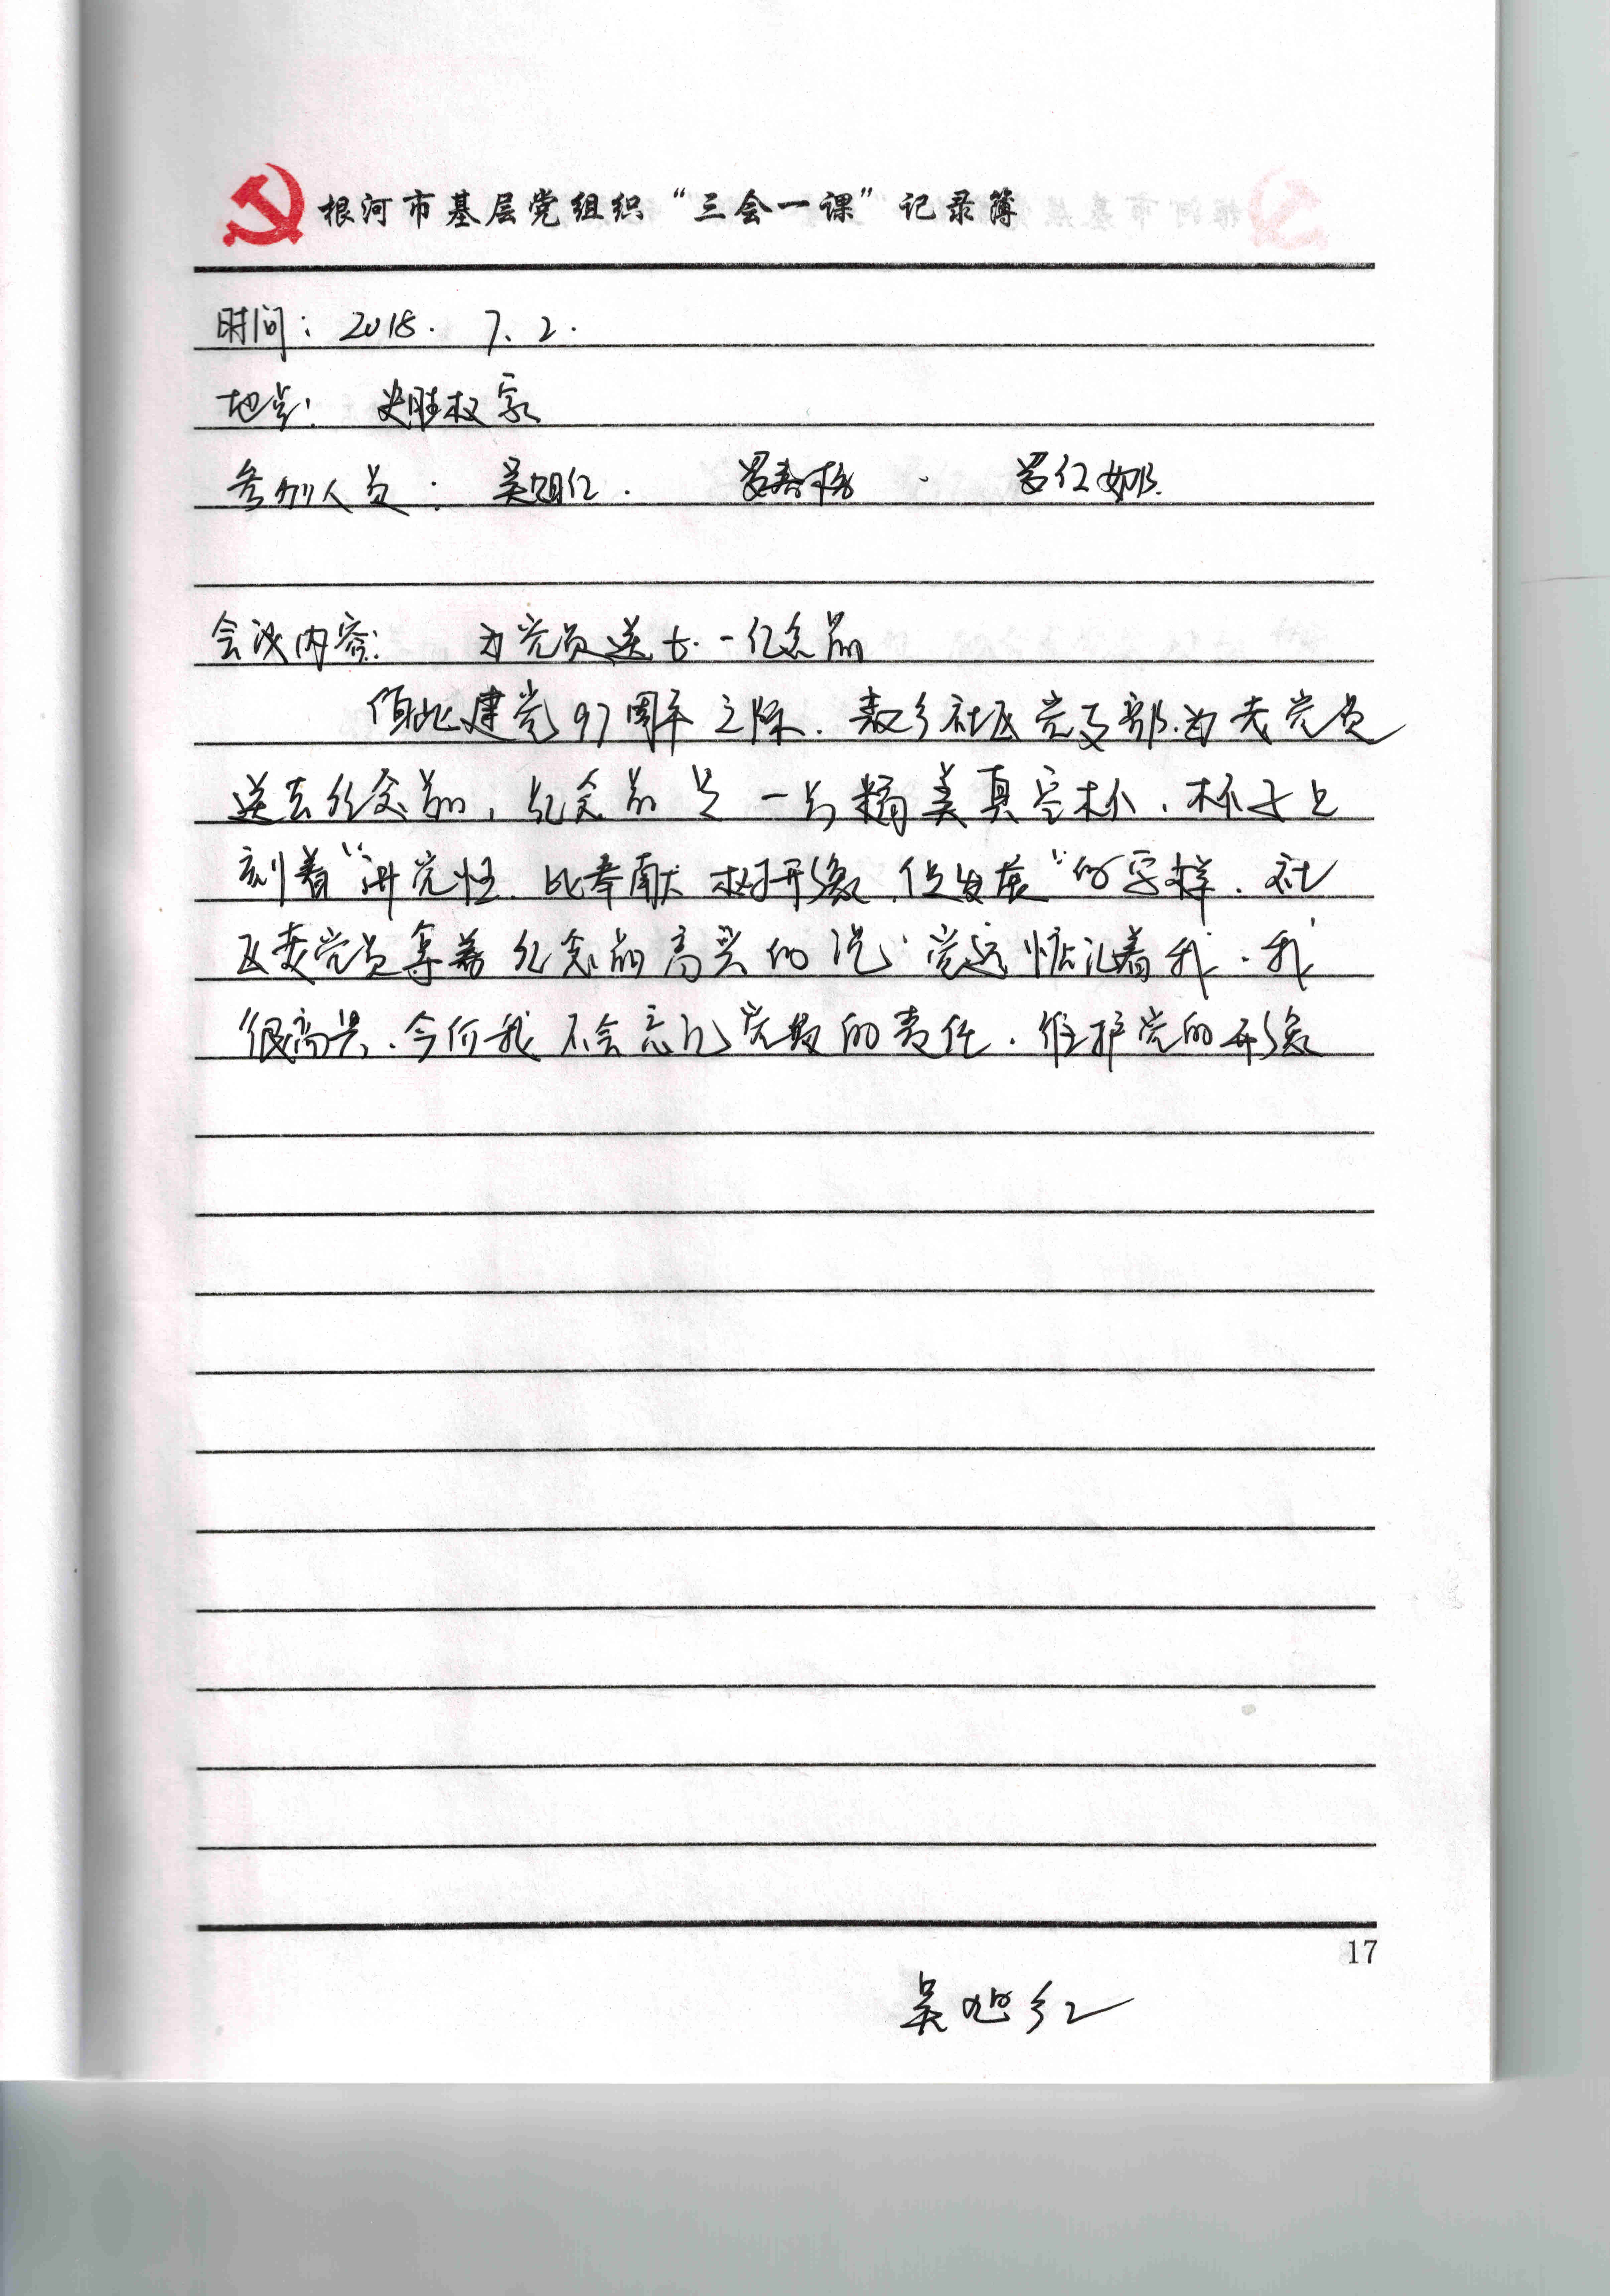 根河市基层党组织“三会一课”记录簿
时间：2018. 7.2.
地点： 史胜权家
参加人员： 吴旭红. 罗春梅 . 罗红娜.
会议内容： 为党员送七.一纪念品
值此建党97周年之际.敖乡社区党支部.为老党员
送去纪念品，纪念品是一只精美真空杯.杯子上
刻着“讲党性.比奉献 树形象.促发展”的字样.社
区老党员拿着纪念品高兴的说“党还惦记着我.我
很高兴.今后我不会忘记党员的责任.维护党的形象
17
吴旭红